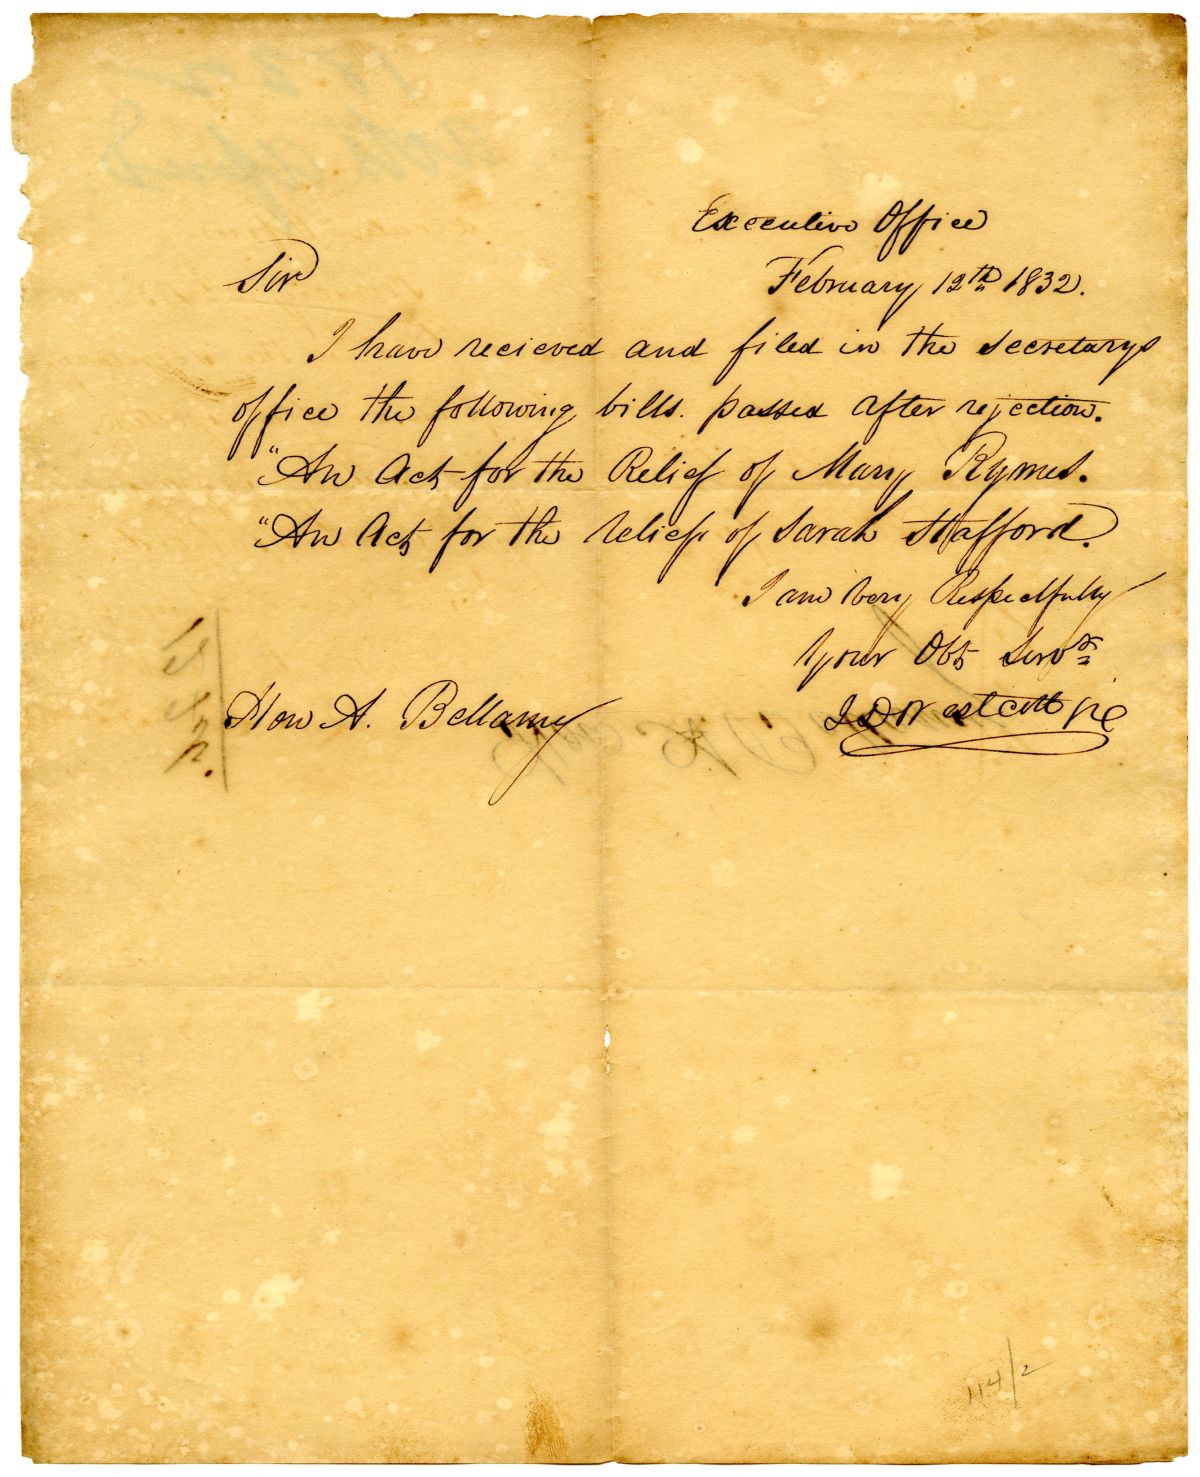 Executive Office
February 12th 1832.
Sir
I have recieved and filed in the Secretarys
office the following bills. passed after rejection.
"An Act for the Relief of Mary Rymes.
"An Act for the relief of Sarah Stafford.
I am very Respectfully
Your Obt Servt
J D Westcott Jr
Hon A. Bellamy
114/2